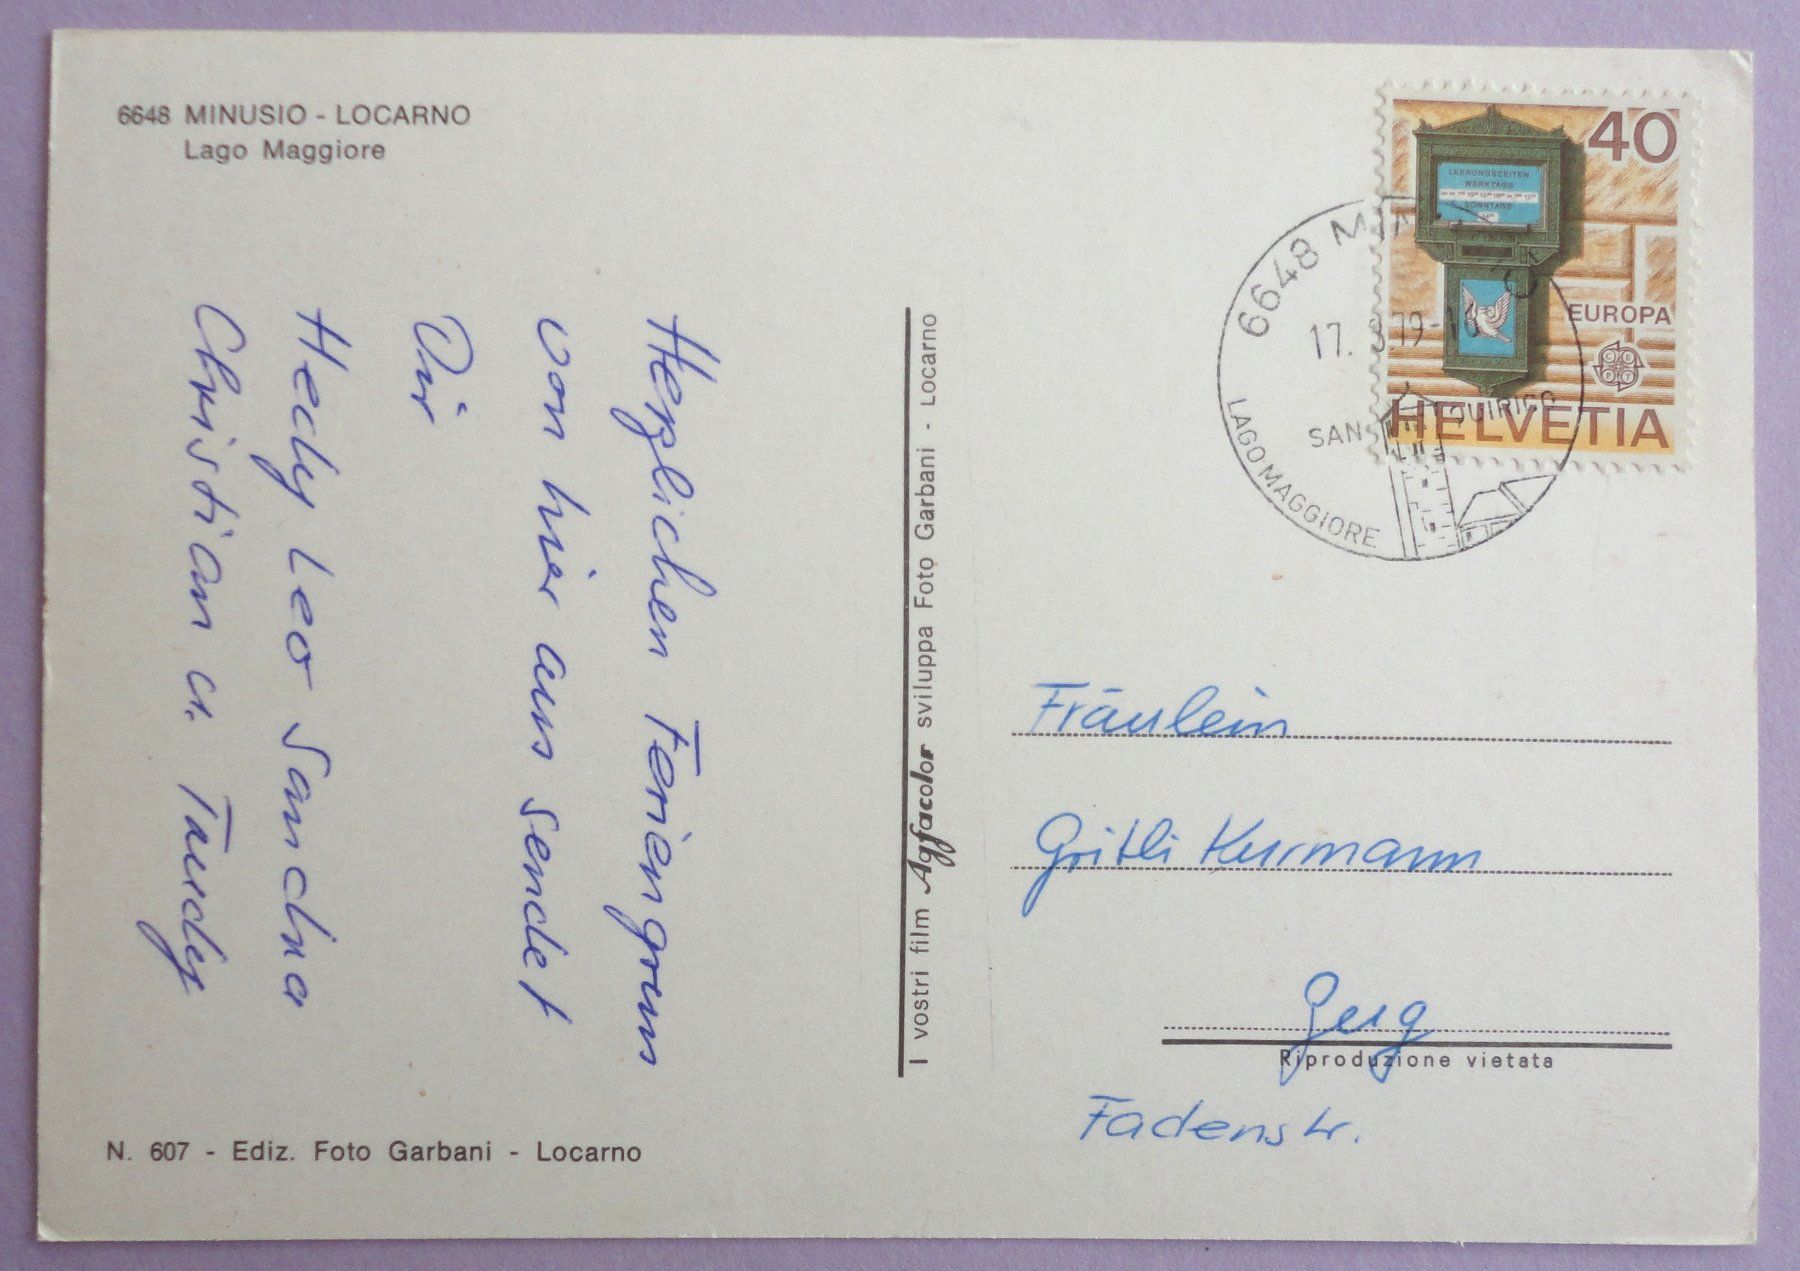 6648 MINUSIO - LOCARNO
Lago Maggiore
Herzlichen Feriengruss
von hier aus sendet
Dir
Hedy Leo Sandra
Christian u. Taudy
N. 607 - Ediz. Foto Garbani - Locarno
I vostri film Agfacolor sviluppa Foto Garbani - Locarno
40
LEERUNGSZEITEN
WERKTAGS
SONNTAGS
EUROPA
CEPT
HELVETIA
6648 MINUSIO
17. 79-
SAN QUIRICO
LAGO MAGGIORE
Fräulein
Gritli Kurmann
Zug
Riproduzione vietata
Fadenstr.